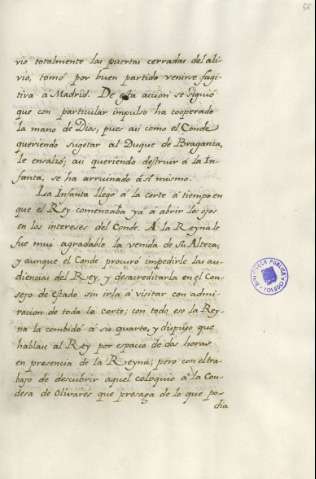 56
vio totalmente las puertas cerradas del ali-
vio, tomó por buen partido venirse fugi-
tiva á Madrid. De esta accion se siguió
que con particular impulso ha cooperado
la mano de Dios, pues asi como el Conde
queriendo sugetar al Duque de Braganza,
le ensalzó; asi queriendo destruir á la In-
fanta, se ha arruinado á sí mismo.
Lea Infanta llegó á la corte á tiempo en
que el Rey comenzaba ya á abrir los ojos
en los intereses del Conde. A la Reyna le
fue muy agradable la venida de Su Alteza;
y aunque el Conde procuró impedirle las au-
diencias del Rey, y desacreditarla en el Con-
sejo de Estado sin irla á visitar con admi-
racion de toda la corte; con todo eso la Rey-
na la combidó á su quarto, y dispuso que
hablase al Rey por espacio de dos horas
en presencia de la Reyna; pero con el tra-
bajo de descubrir aquel coloquio á la Con-
desa de Olivares que presaga de lo que po-
dia
BIBLIOTECA PUBLICA
TOLEDO